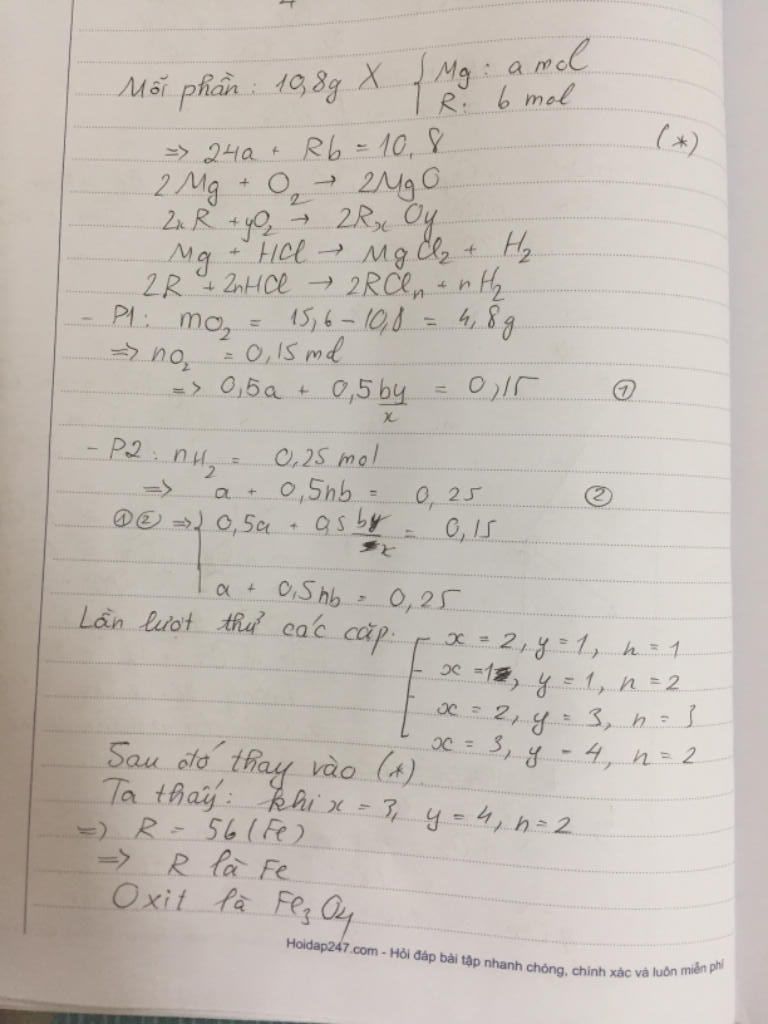 Mỗi phần: 10,8g X { Mg: a mol
R: b mol
=> 24a + Rb = 10,8 (*)
2Mg + O₂ → 2MgO
2xR + yO₂ → 2RₓOy
Mg + HCl → MgCl₂ + H₂
2R + 2nHCl → 2RClₙ + nH₂
- P1: mO₂ = 15,6 - 10,8 = 4,8g
=> nO₂ = 0,15 mol
=> 0,5a + 0,5by/x = 0,15 ①
- P2: nH₂ = 0,25 mol
=> a + 0,5nb = 0,25 ②
①② => { 0,5a + 0,5 by/x = 0,15
a + 0,5nb = 0,25
Lần lượt thử các cặp. [ x = 2, y = 1, n = 1
x = 1, y = 1, n = 2
x = 2, y = 3, n = 3
x = 3, y = 4, n = 2
Sau đó thay vào (*)
Ta thấy: khi x = 3, y = 4, n = 2
=> R = 56 (Fe)
=> R là Fe
Oxit là Fe₃O₄
Hoidap247.com - Hỏi đáp bài tập nhanh chóng, chính xác và luôn miễn phí